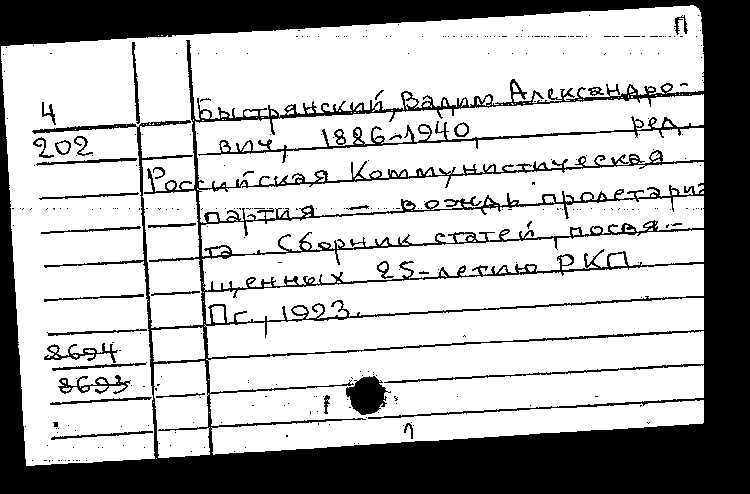 П
4 Быстрянский, Вадим Александро-
202 вич, 1886-1940, ред.
Российская Коммунистическая
партия — вождь пролетариа
та. Сборник статей, посвя-
щенных 25-летию РКП.
Пг., 1923.
8694
8693